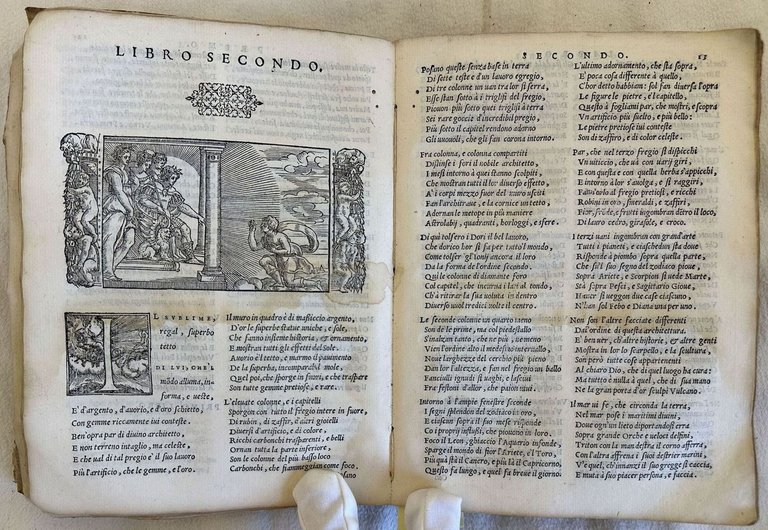 LIBRO SECONDO.
IL SVBLIME,
regal, superbo
tetto
DI LVI, CHE'L
modo alluma, in-
forma, e veste,
E' d'argento, d'auorio, e d'oro schietto,
Con gemme riccamente iui conteste.
Ben'opra par di diuino architetto,
E non terreno intaglio, ma celeste;
E che ual di tal pregio è'l suo lauoro
Più l'artificio, che le gemme, e l'oro.
Il muro in quadro è di massiccio argento,
D'or le superbe statue uniche, e sole,
Che fanno insieme historia, & ornamento,
E mostran tutti gli effetti del Sole.
Auorio è'l tetto, e marmo il pauimento
De la superba, incomparabil mole.
Quel poi, che sporge in fuori, e che traspare
Son tutte gemme pretiose, e rare.
L'eleuate colonne, e i capitelli
Sporgon con tutto il fregio intero in fuore,
Di rubin, di zaffiri, e d'altri gioielli
Diuersi d'artificio, e di colore.
Ricchi carbonchi trasparenti, e belli
Ornan tutta la parte inferiore.
Son le colonne del più basso loco
Carbonchi, che fiammeggian come foco.
SECONDO.
Posano queste senza base in terra
Di sette teste e d'un lauoro egregio,
Di tre colonne un uan tra lor si serra,
Esse stan sotto à i trigliffi del fregio,
Piouon più sotto quei triglifi à terra
Sei rare goccie d'incredibil pregio,
Più sotto il capitel rendono adorno
Gli uuouoli, che gli fan corona intorno.
Fra colonna, e colonna compartiti
Distinse i fori il nobile architetto,
I mesi intorno à quei stanno scolpiti,
Che mostran tutti il lor diuerso effetto,
A' i corpi mezzo fuor del muro usciti
Fan l'architraue, e la cornice un tetto,
Adornan le metope in più maniere
Astrolabij, quadranti, horloggi, e sfere.
Di quì tolsero i Dori il bel lauoro,
Che dorico hor si fa per tutto'l mondo,
Come tolser gl'Ionij ancora il loro
Da la forma de l'ordine secondo.
Quì le colonne di diamante sono
Col capitel, che incurua i lati al tondo,
C'hà à tirar la sua uoluta in dentro
Diuerso uuol tredici uolte il centro.
Le seconde colonne un quarto meno
Son de le prime, ma col piedestallo
S'inalzan tanto, che ne più, ne meno
L'ordine alza
Noue larghezze del cerchio più pieno
Dan lor l'altezza, e fan nel fregio un ballo
Fanciulli ignudi sì uaghi, e lasciui
Fra festoni d'allor, che paion uiui.
Intorno à l'ampie fenestre seconde
I segni splendon del zodiaco in oro,
Et ciascun sopra il suo mese risponde
Co i proprij influssi, che piouono in loro.
Foco il Leon, ghiaccio l'Aquario infonde,
Sparge il mondo di fior l'Ariete, e'l Toro,
Più quà stà il Cancro, e più là il Capricorno,
Questo fa lungo, e quel fa breue il giorno.
13
L'ultimo adornamento, che stà sopra,
E' poca cosa differente à quello,
C'hor detto habbiam: sol fan diuersa l'opra
Le figure le pietre, e'l capitello.
Questo à fogliami par, che mostri, e scopra
Vn artificio più suelto, e più bello:
Le pietre pretiose iui conteste
Son di zaffiro, e di color celeste.
Par, che nel terzo fregio si dispicchi
Vn uiticcio, che uà con uarij giri,
E con questa e con quella herba s'appicchi,
E intorno à lor s'auolga, e si raggiri,
Fan'l'uua d'oro fregij pretiosi, e ricchi
Robini in oro, smeraldi, e zaffiri,
Fior, frõde, e frutti ingombran dẽtro il loco,
Di lauro cedro, girasole, e croco.
I terzi uani ingombran con grand'arte
Tutti i pianeti, e ciascheduno stà doue
Risponde à piombo sopra quella parte,
Che fu'l suo segno del zodiaco pioue,
Sopra Ariete, e Scorpion si uede Marte,
Stà sopra Pesci, e Sagittario Gioue,
Hauer si ueggon due case ciascuno,
N'han sol Febo e Diana una per uno.
Non son l'altre facciate differenti
Da l'ordine di questa architettura.
E' ben uer, ch'altre historie, e altre genti
Mostra in lor lo scarpello, e la scultura,
Son però tutte cose appartenenti
Al chiaro Dio, che di quel luogo ha cura:
Ma tutto è nulla à quel, che di sua mano
Ne la gran porta d'or sculpì Vulcano.
Il mar ui se, che circonda la terra,
Nel mar pose i maritimi diuini,
Doue ogn'un lieto diportandosi erra
Sopra grande Orche e ueloci delfini,
Triton con la man destra il corno afferra,
Con l'altra affrena i suoi destrier marini,
V'è quel, ch'innanzi il suo gregge si caccia,
E muta à suo piacer persona, e faccia.